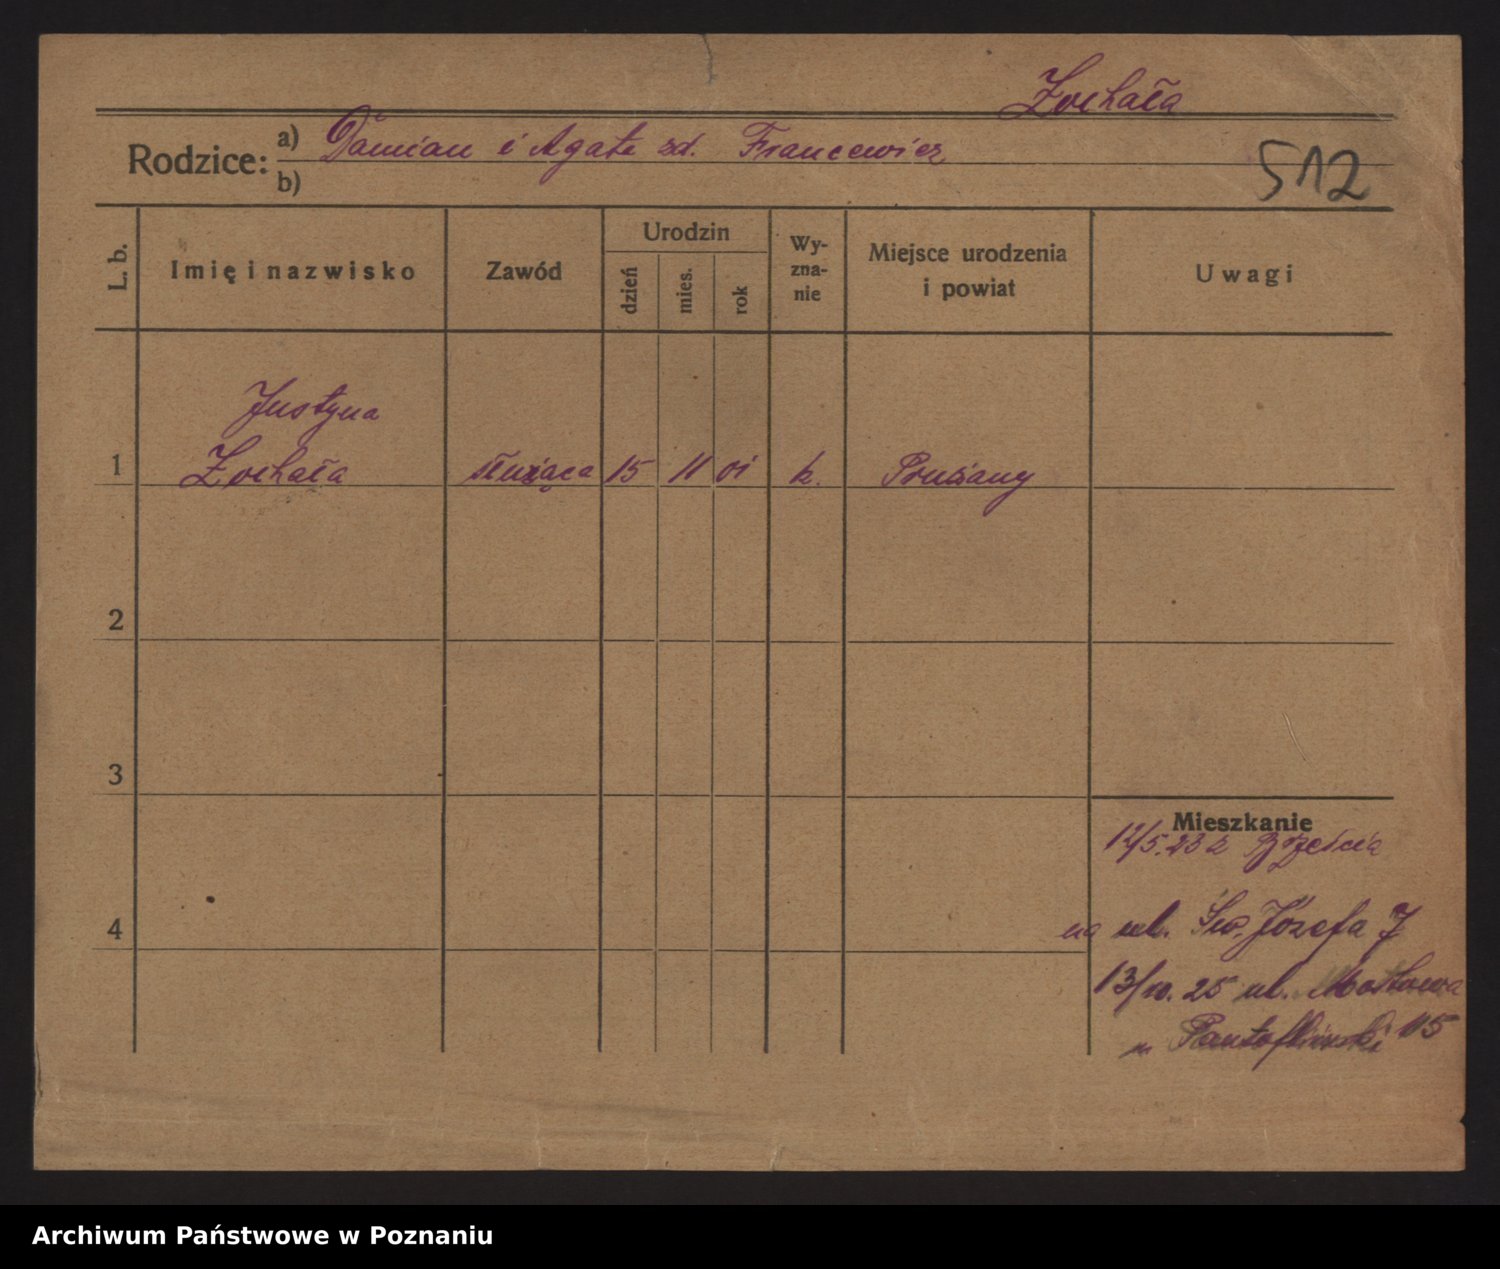 Żochała
Rodzice: a) Damian i Agata zd. Francewicz
b)
512
L. b.
Imię i nazwisko
Zawód
Urodzin
dzień
mies.
rok
Wy-
zna-
nie
Miejsce urodzenia
i powiat
Uwagi
Justyna
1 Żochała służąca 15 11 01 k. Prużany
2
3
4
Mieszkanie
12/5.23 z Brześcia
na ul. Św. Józefa 7
13/10. 25 ul. Mostowa
15
Archiwum Państwowe w Poznaniu